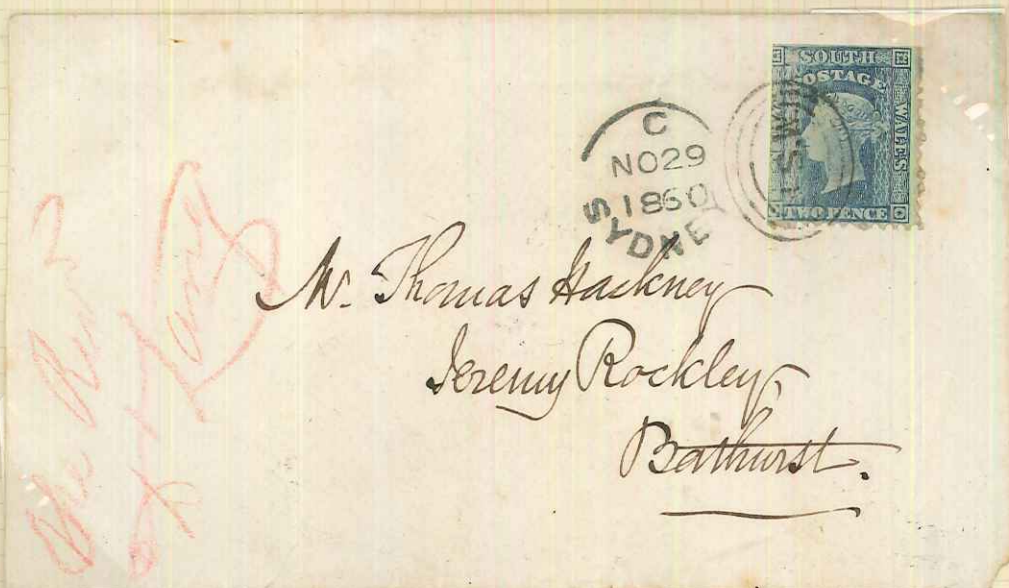 SOUTH
POSTAGE
WALES
TWO PENCE
C
NO29
1860
SYDNE
N.S.W
Mr. Thomas Hackney
Jeremy Rockley
Bathurst.
The Rev
Dr Lang